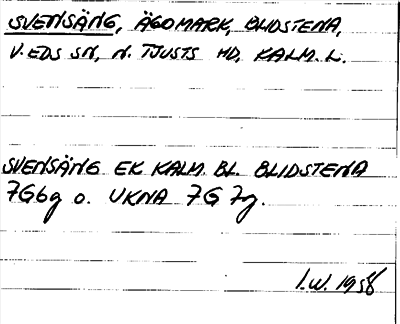 SVENSÄNG, ÄGOMARK, BLIDSTENA,
V. EDS SN, N. TJUSTS HD, KALM. L.
SVENSÄNG EK KALM. BL. BLIDSTENA
7G6g o. UKNA 7G7g.
I.W. 1958